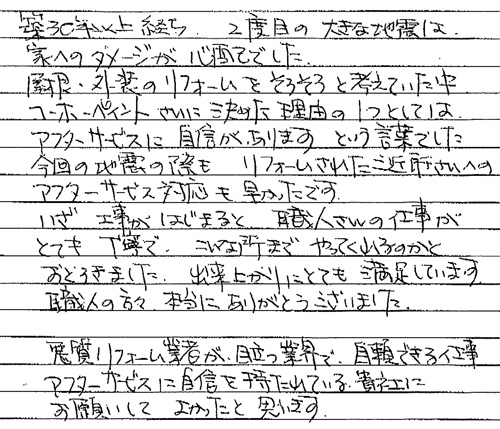 築30年以上経ち、2度目の大きな地震は、
家へのダメージが心配でした。
屋根・外装のリフォームをそろそろと考えていた中
ユーホーペイントさんに決めた理由の1つとしては、
アフターサービスに自信があります という言葉でした
今回の地震の際も リフォームされたご近所さんへの
アフターサービス対応も早かったです。
いざ 工事がはじまると、職人さんの仕事が
とても丁寧で、こんな所までやってくれるのかと
おどろきました。出来上がりにとても満足しています。
職人の方々、本当にありがとうございました。
悪質リフォーム業者が、目立つ業界で、自頼できる仕事
アフターサービスに自信を持たれている、貴社に
お願いして よかったと思います。